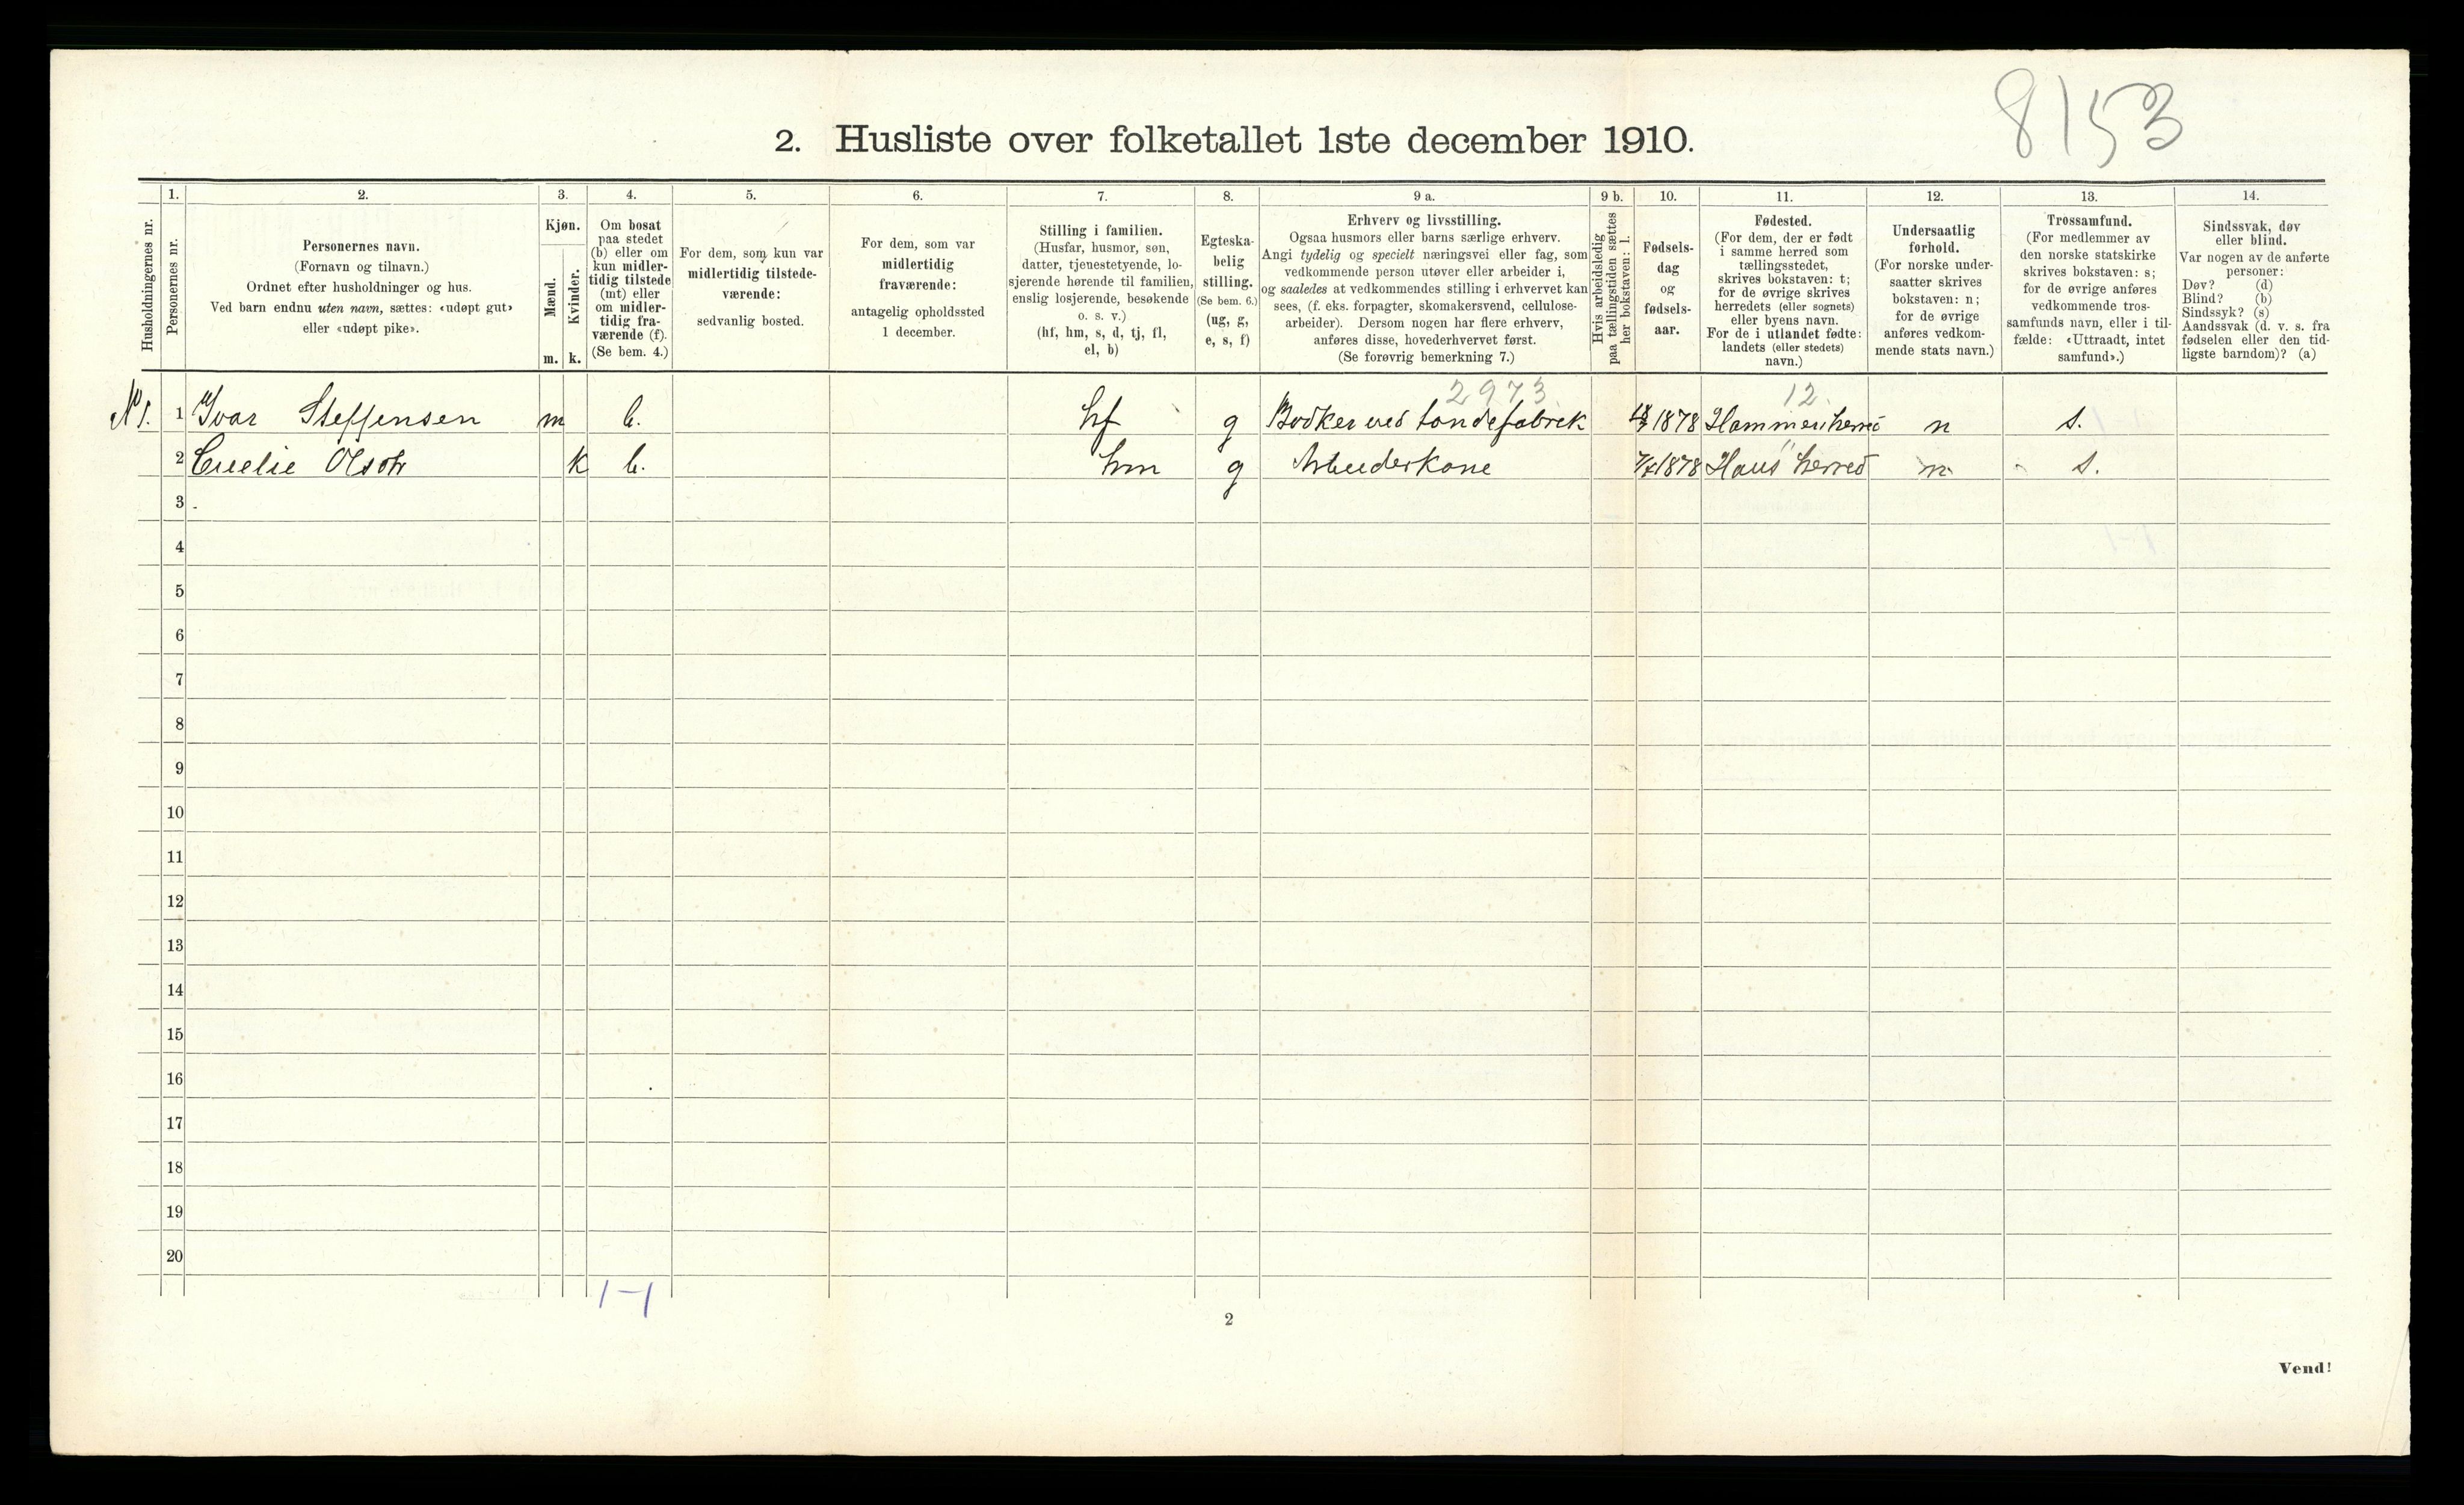 8153
2. Husliste over folketallet 1ste december 1910.
Husholdningernes nr.
1.
Personernes nr.
2.
Personernes navn.
(Fornavn og tilnavn.)
Ordnet efter husholdninger og hus.
Ved barn endnu uten navn, sættes: «udøpt gut»
eller «udøpt pike».
3.
Kjøn.
Mænd.
m.
Kvinder.
k.
4.
Om bosat
paa stedet
(b) eller om
kun midler-
tidig tilstede
(mt) eller
om midler-
tidig fra-
værende (f).
(Se bem. 4.)
5.
For dem, som kun var
midlertidig tilstede-
værende:
sedvanlig bosted.
6.
For dem, som var
midlertidig
fraværende:
antagelig opholdssted
1 december.
7.
Stilling i familien.
(Husfar, husmor, søn,
datter, tjenestetyende, lo-
sjerende hørende til familien,
enslig losjerende, besøkende
o. s. v.)
(hf, hm, s, d, tj, fl,
el, b)
8.
Egteska-
belig
stilling.
(Se bem. 6.)
(ug, g,
e, s, f)
9 a.
Erhverv og livsstilling.
Ogsaa husmors eller barns særlige erhverv.
Angi tydelig og specielt næringsvei eller fag, som
vedkommende person utøver eller arbeider i,
og saaledes at vedkommendes stilling i erhvervet kan
sees, (f. eks. forpagter, skomakersvend, cellulose-
arbeider). Dersom nogen har flere erhverv,
anføres disse, hovederhvervet først.
(Se forøvrig bemerkning 7.)
9 b.
Hvis arbeidsledig
paa tællingstiden sættes
her bokstaven: l.
10.
Fødsels-
dag
og
fødsels-
aar.
11.
Fødested.
(For dem, der er født
i samme herred som
tællingsstedet,
skrives bokstaven: t;
for de øvrige skrives
herredets (eller sognets)
eller byens navn.
For de i utlandet fødte:
landets (eller stedets)
navn.)
12.
Undersaatlig
forhold.
(For norske under-
saatter skrives
bokstaven: n;
for de øvrige
anføres vedkom-
mende stats navn.)
13.
Trossamfund.
(For medlemmer av
den norske statskirke
skrives bokstaven: s;
for de øvrige anføres
vedkommende tros-
samfunds navn, eller i til-
fælde: «Uttraadt, intet
samfund».)
14.
Sindssvak, døv
eller blind.
Var nogen av de anførte
personer:
Døv? (d)
Blind? (b)
Sindssyk? (s)
Aandssvak (d. v. s. fra
fødselen eller den tid-
ligste barndom)? (a)
2973 12.
N 1. 1 Ivar Steffensen m b. hf g Bødker ved tøndefabrik 1878 Hammer herred n s.
2 Olson k b. hm g Arbeiderkone 1878 Haus herred n s.
3
4
5
6
7
8
9
10
11
12
13
14
15
16
17
18
19
20
1-1
2
Vend!